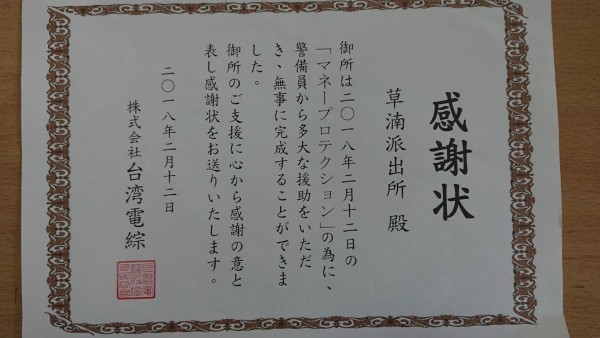 感謝状
草湳派出所 殿
御所は二〇一八年二月十二日の
「マネープロテクション」の為に、
警備員から多大な援助をいただ
き、無事に完成することができま
した。
御所のご支援に心から感謝の意と
表し感謝状をお送りいたします。
二〇一八年二月十二日
株式会社 台湾電綜